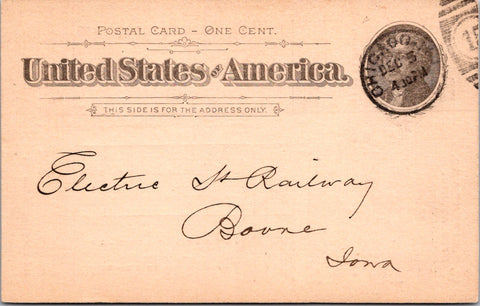 POSTAL CARD – ONE CENT.
United States of America.
THIS SIDE IS FOR THE ADDRESS ONLY.
CHICAGO
DEC 5
Electric St Railway
Boone
Iowa